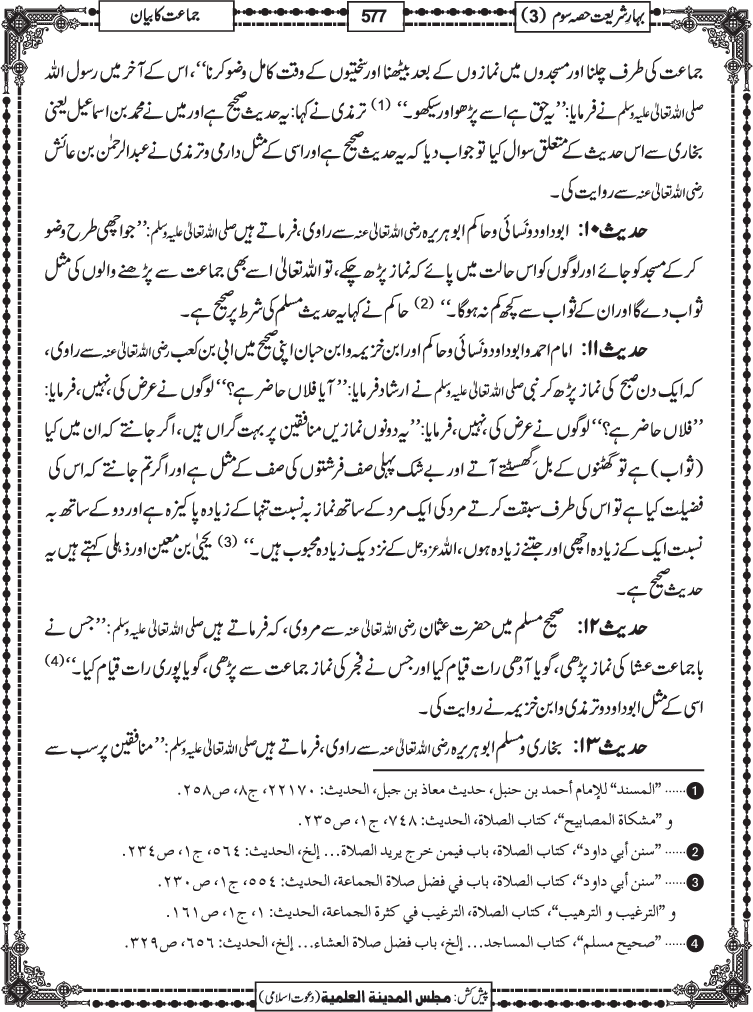 بہارِ شریعت حصہ سوم (3)
577
جماعت کا بیان
جماعت کی طرف چلنا اور مسجدوں میں نمازوں کے بعد بیٹھنا اور سختیوں کے وقت کامل وضو کرنا‘‘، اس کے آخر میں رسول اللہ
صلی اللہ تعالیٰ علیہ وسلم نے فرمایا: ’’یہ حق ہے اسے پڑھو اور سیکھو۔‘‘ (1) ترمذی نے کہا: یہ حدیث صحیح ہے اور میں نے محمد بن اسماعیل یعنی
بخاری سے اس حدیث کے متعلق سوال کیا تو جواب دیا کہ یہ حدیث صحیح ہے اور اسی کے مثل دارمی و ترمذی نے عبدالرحمٰن بن عائش
رضی اللہ تعالیٰ عنہ سے روایت کی۔
حدیث ۱۰: ابو داود و نَسائی و حاکم ابو ہریرہ رضی اللہ تعالیٰ عنہ سے راوی، فرماتے ہیں صلی اللہ تعالیٰ علیہ وسلم: ’’جو اچھی طرح وضو
کر کے مسجد کو جائے اور لوگوں کو اس حالت میں پائے کہ نماز پڑھ چکے، تو اللہ تعالیٰ اسے بھی جماعت سے پڑھنے والوں کی مثل
ثواب دے گا اور ان کے ثواب سے کچھ کم نہ ہوگا۔‘‘ (2) حاکم نے کہا یہ حدیث مسلم کی شرط پر صحیح ہے۔
حدیث ۱۱: امام احمد و ابو داود و نَسائی و حاکم اور ابن خزیمہ و ابن حبان اپنی صحیح میں ابی بن کعب رضی اللہ تعالیٰ عنہ سے راوی،
کہ ایک دن صبح کی نماز پڑھ کر نبی صلی اللہ تعالیٰ علیہ وسلم نے ارشاد فرمایا: ’’آیا فلاں حاضر ہے؟‘‘ لوگوں نے عرض کی، نہیں، فرمایا:
’’فلاں حاضر ہے؟‘‘ لوگوں نے عرض کی، نہیں، فرمایا: ’’یہ دونوں نمازیں منافقین پر بہت گراں ہیں، اگر جانتے کہ ان میں کیا
(ثواب) ہے تو گھٹنوں کے بل گھسٹتے آتے اور بے شک پہلی صف فرشتوں کی صف کے مثل ہے اور اگر تم جانتے کہ اس کی
فضیلت کیا ہے تو اس کی طرف سبقت کرتے مرد کی ایک مرد کے ساتھ نماز بہ نسبت تنہا کے زیادہ پاکیزہ ہے اور دو کے ساتھ بہ
نسبت ایک کے زیادہ اچھی اور جتنے زیادہ ہوں، اللہ عزوجل کے نزدیک زیادہ محبوب ہیں۔‘‘ (3) یحییٰ بن معین اور ذہلی کہتے ہیں یہ
حدیث صحیح ہے۔
حدیث ۱۲: صحیح مسلم میں حضرت عثمان رضی اللہ تعالیٰ عنہ سے مروی، کہ فرماتے ہیں صلی اللہ تعالیٰ علیہ وسلم: ’’جس نے
باجماعت عشا کی نماز پڑھی، گویا آدھی رات قیام کیا اور جس نے فجر کی نماز جماعت سے پڑھی، گویا پوری رات قیام کیا۔‘‘ (4)
اسی کے مثل ابو داود و ترمذی و ابن خزیمہ نے روایت کی۔
حدیث ۱۳: بخاری و مسلم ابو ہریرہ رضی اللہ تعالیٰ عنہ سے راوی، فرماتے ہیں صلی اللہ تعالیٰ علیہ وسلم: ’’منافقین پر سب سے
1 ...... ”المسند“ للإمام أحمد بن حنبل، حديث معاذ بن جبل، الحديث: ٢٢١٧٠، ج٨، ص٢٥٨.
و ”مشكاة المصابيح“، كتاب الصلاة، الحديث: ٧٤٨، ج١، ص٢٣٥.
2 ...... ”سنن أبي داود“، كتاب الصلاة، باب فيمن خرج يريد الصلاة... إلخ، الحديث: ٥٦٤، ج١، ص٢٣٤.
3 ...... ”سنن أبي داود“، كتاب الصلاة، باب في فضل صلاة الجماعة، الحديث: ٥٥٤، ج١، ص٢٣٠.
و ”الترغيب و الترهيب“، كتاب الصلاة، الترغيب في كثرة الجماعة، الحديث: ١، ج١، ص١٦١.
4 ...... ”صحيح مسلم“، كتاب المساجد... إلخ، باب فضل صلاة العشاء... إلخ، الحديث: ٦٥٦، ص٣٢٩.
پیش کش: مجلس المدینۃ العلمیۃ (دعوت اسلامی)